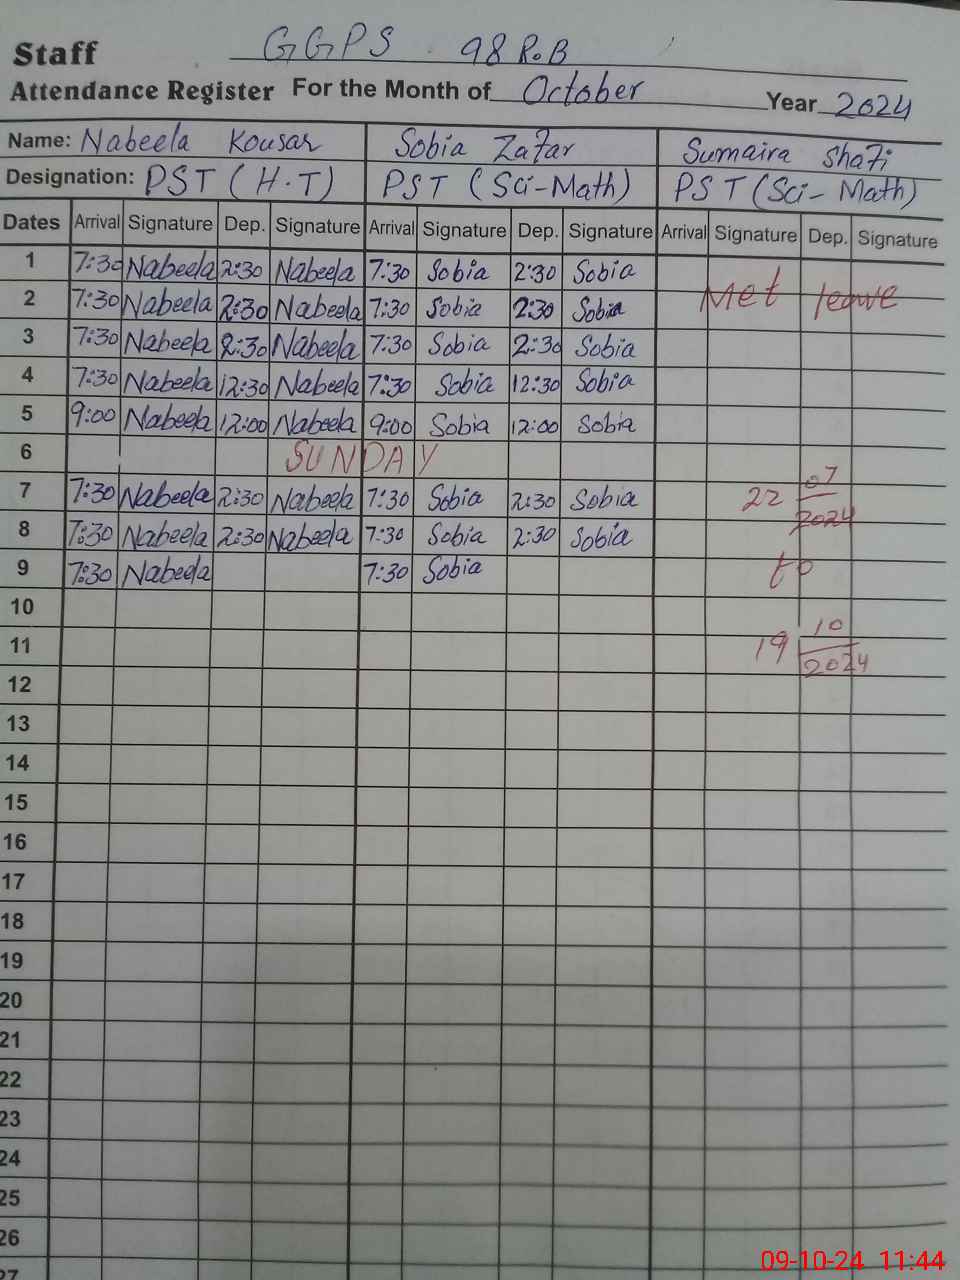 Staff GGPS 98 R.B
Attendance Register For the Month of October Year 2024
Name: Nabeela Kousar Sobia Zafar Sumaira Shafi
Designation: PST (H.T) PST (Sci-Math) PST (Sci-Math)
Dates Arrival Signature Dep. Signature Arrival Signature Dep. Signature Arrival Signature Dep. Signature
1 7:30 Nabeela 2:30 Nabeela 7:30 Sobia 2:30 Sobia
2 7:30 Nabeela 2:30 Nabeela 7:30 Sobia 2:30 Sobia Met leave
3 7:30 Nabeela 2:30 Nabeela 7:30 Sobia 2:30 Sobia
4 7:30 Nabeela 12:30 Nabeela 7:30 Sobia 12:30 Sobia
5 9:00 Nabeela 12:00 Nabeela 9:00 Sobia 12:00 Sobia
6 SUNDAY
7 7:30 Nabeela 2:30 Nabeela 7:30 Sobia 2:30 Sobia 22 07 2024
8 7:30 Nabeela 2:30 Nabeela 7:30 Sobia 2:30 Sobia
9 7:30 Nabeela 7:30 Sobia to
10
11 19 10 2024
12
13
14
15
16
17
18
19
20
21
22
23
24
25
26
27
09-10-24 11:44